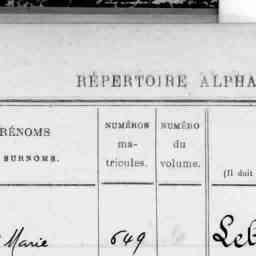 RÉPERTOIRE ALPHA
RÉNOMS
SURNOMS.
NUMÉROS
ma-
tricules.
NUMÉRO
du
volume.
(Il doit
Marie
649
Leb